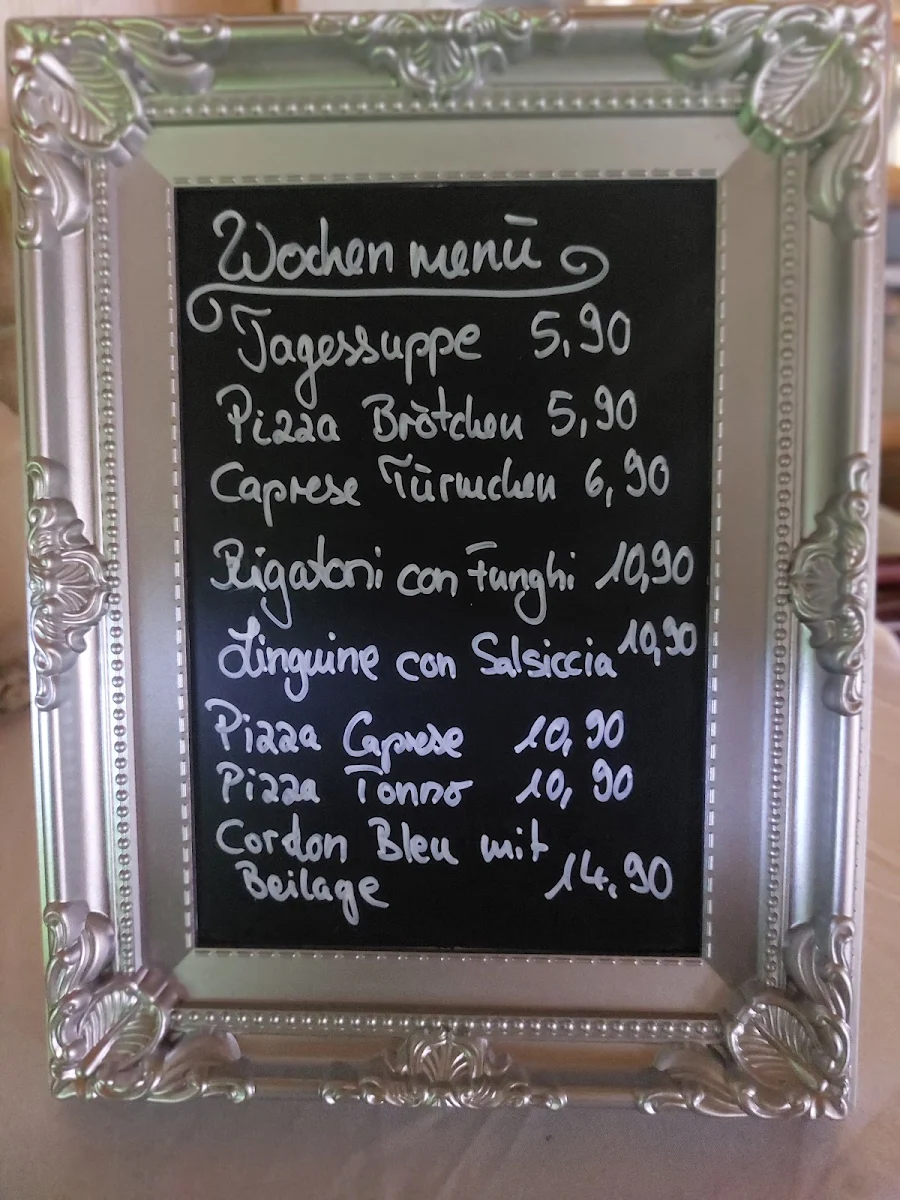 Wochen menü
Tagessuppe 5,90
Pizza Brötchen 5,90
Caprese Türmchen 6,90
Rigatoni con Funghi 10,90
Linguine con Salsiccia 10,90
Pizza Caprese 10,90
Pizza Tonno 10,90
Cordon Bleu mit
Beilage 14,90